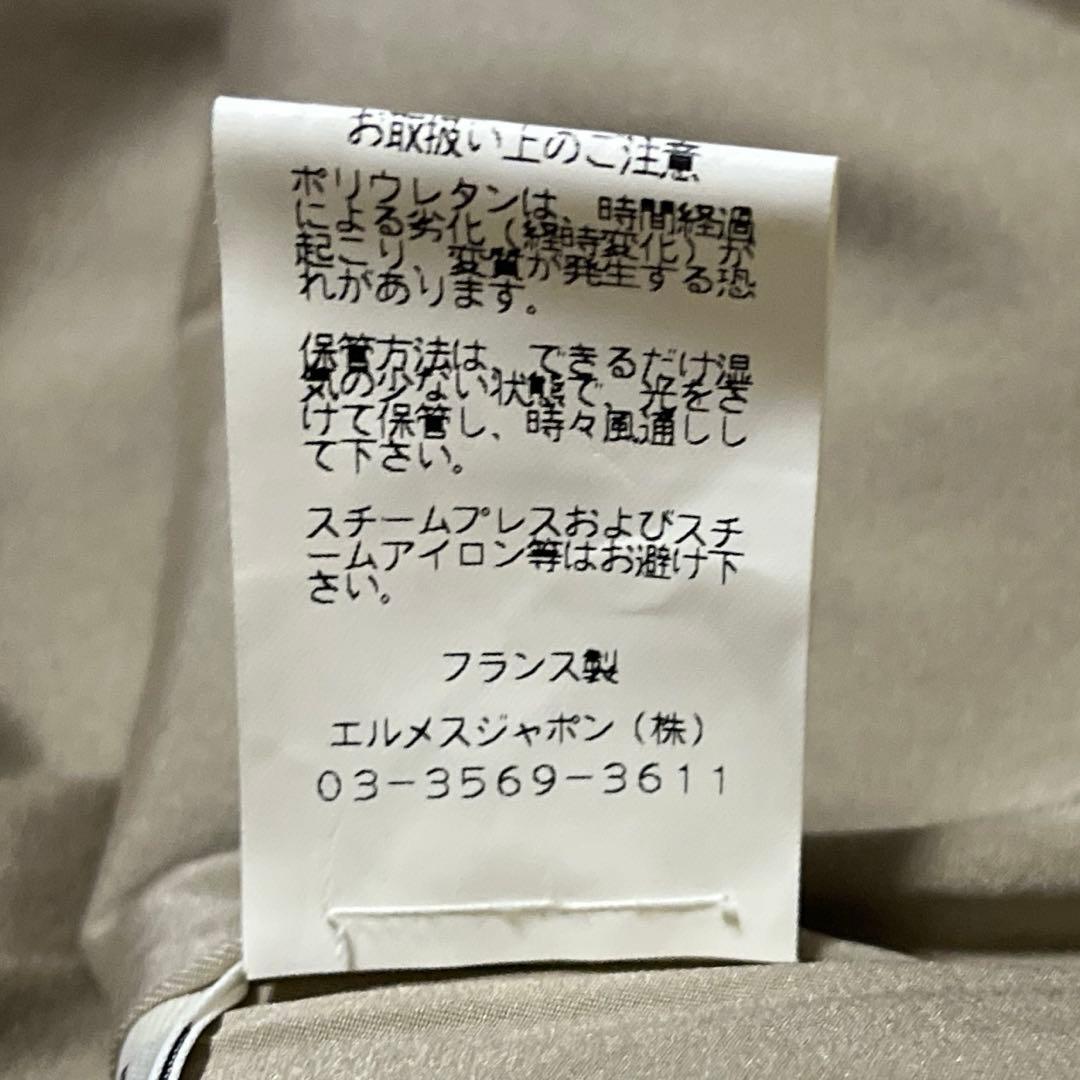 お取扱い上のご注意
ポリウレタンは、時間経過
による劣化（経時変化）が
起こり、変質が発生する恐
れがあります。
保管方法は、できるだけ湿
気の少ない状態で、光をさ
けて保管し、時々風通しし
て下さい。
スチームプレスおよびスチ
ームアイロン等はお避け下
さい。
フランス製
エルメスジャポン（株）
03-3569-3611